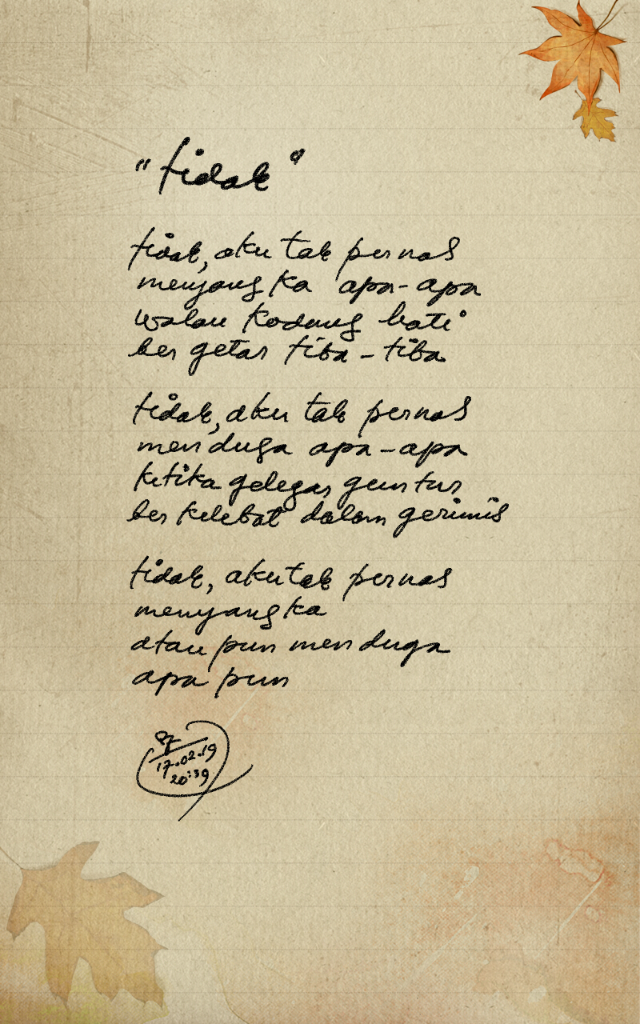 "tidak"
tidak, aku tak pernah
menyangka apa-apa
walau kadang hati
bergetar tiba-tiba
tidak, aku tak pernah
menduga apa-apa
ketika gelegar guntur
berkelebat dalam gerimis
tidak, aku tak pernah
menyangka
ataupun menduga
apa pun
17-02-19
20:39